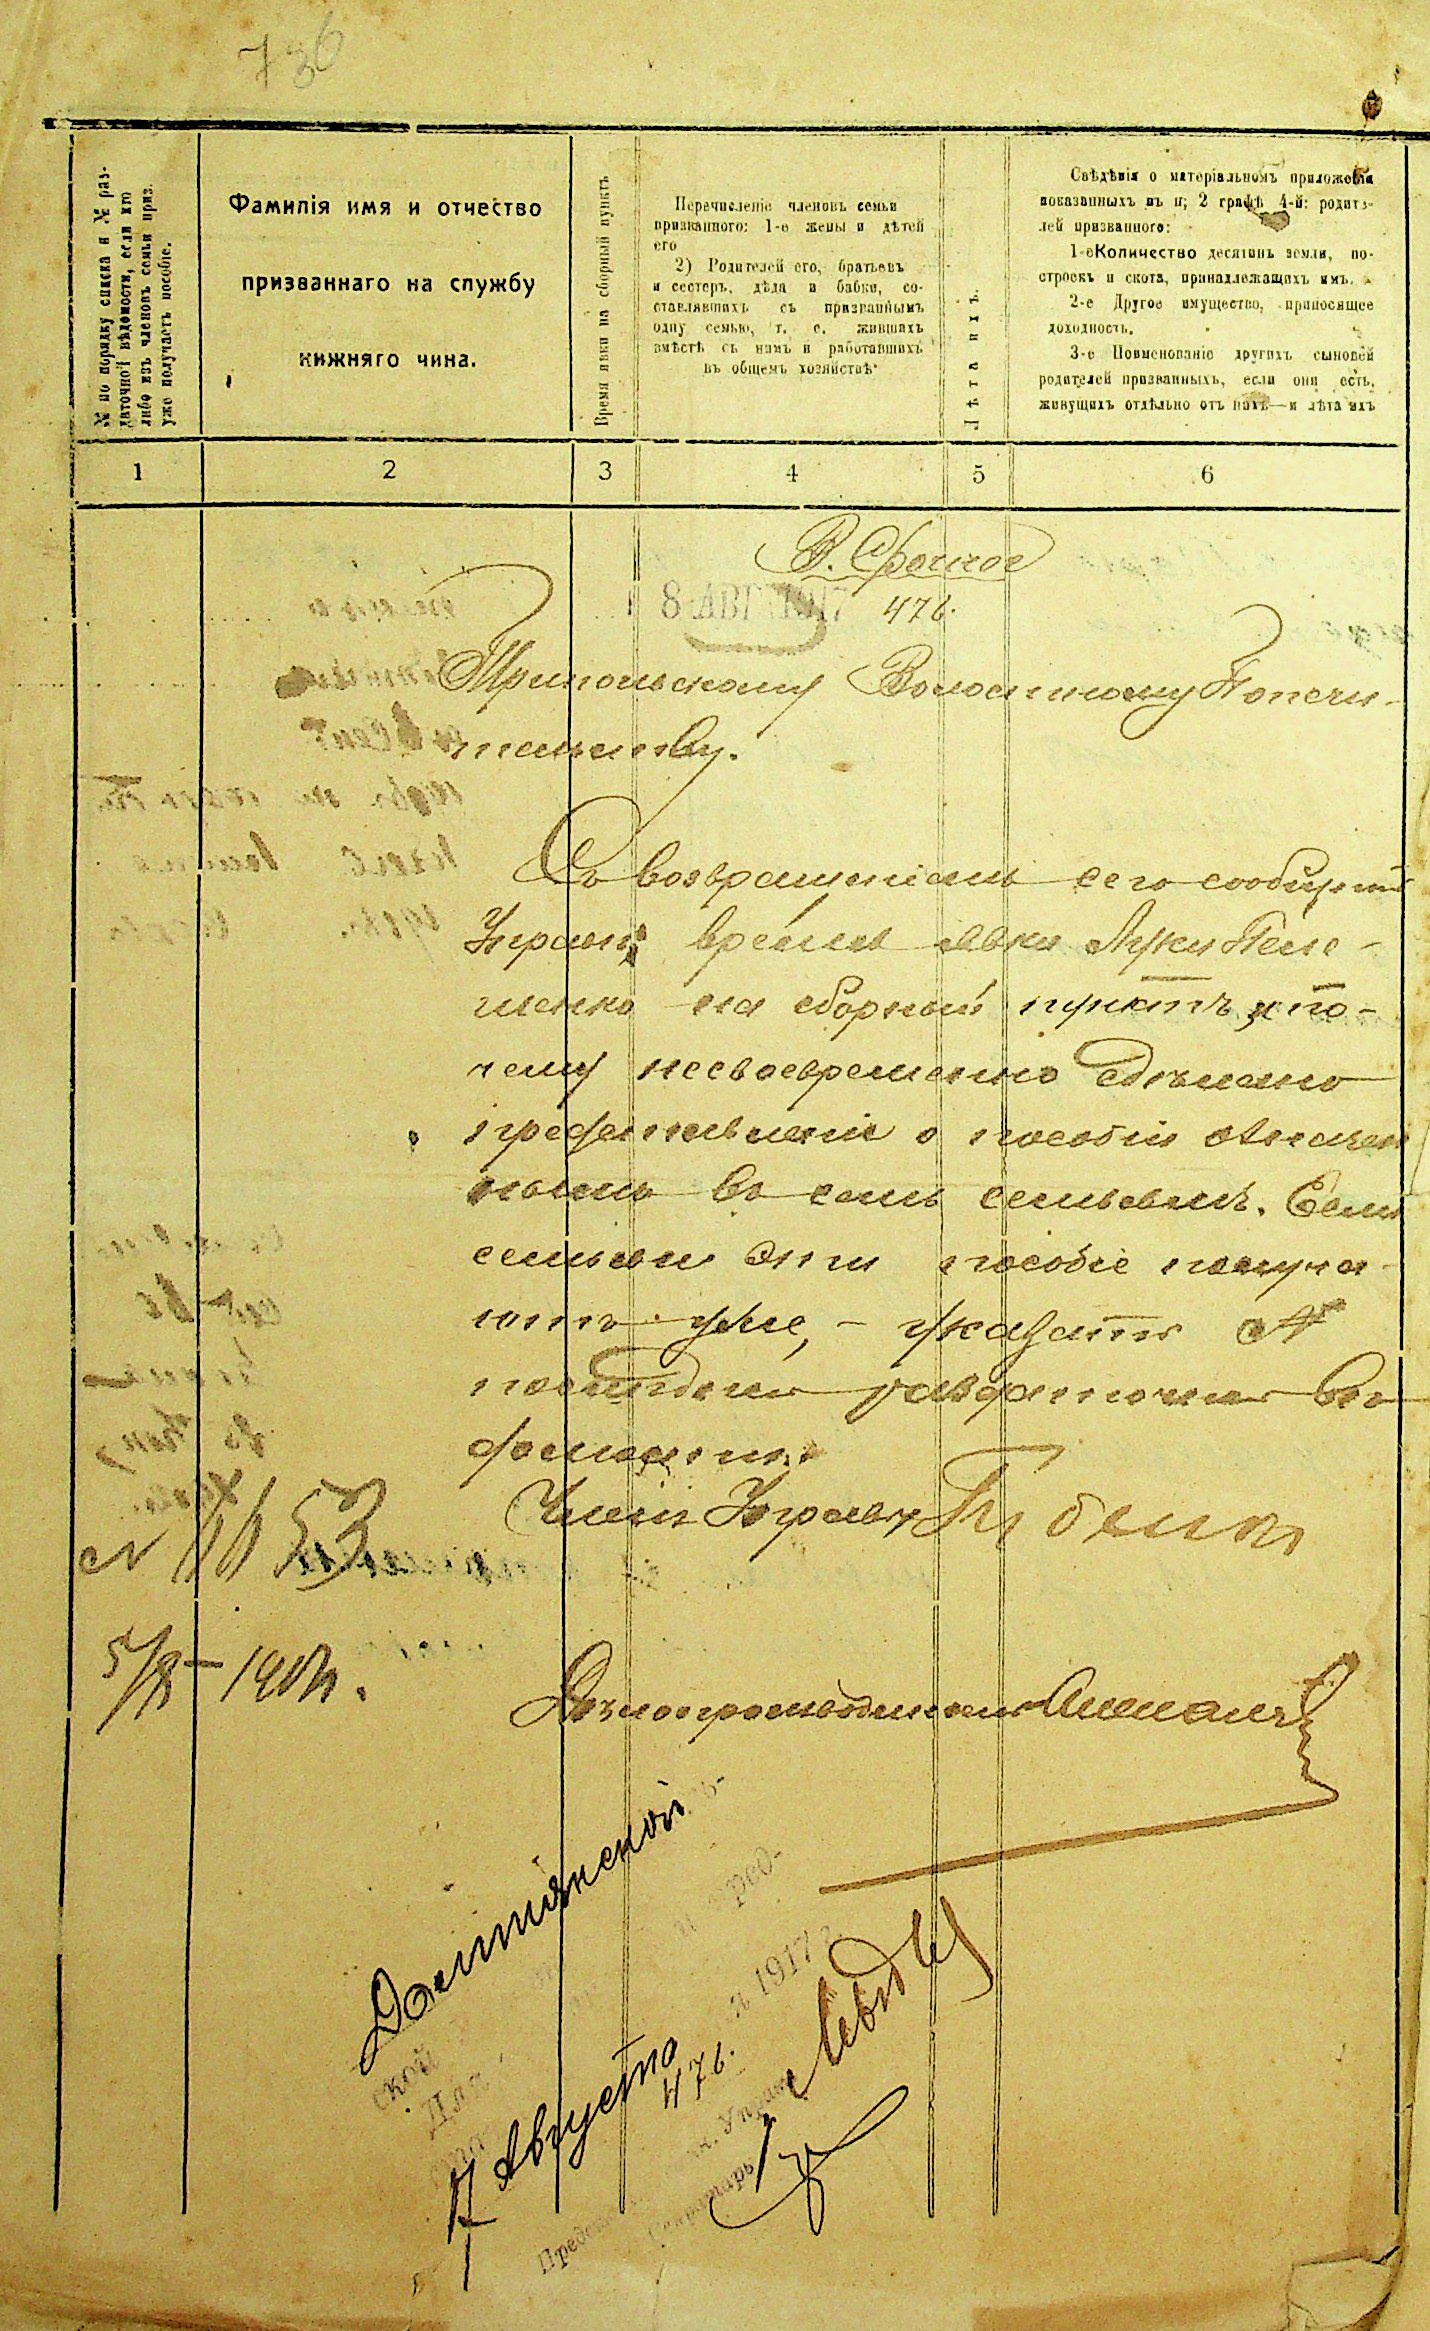 736
№ по порядку списка и № раз-
даточной вѣдомости, если кто
либо изъ членовъ семьи приз.
уже получаетъ пособіе.
Фамилія имя и отчество
призваннаго на службу
нижняго чина.
Время явки на сборный пунктъ
Перечисленіе членовъ семьи
призваннаго: 1-е жены и дѣтей
его
2) Родителей его, братьевъ
и сестеръ, дѣда и бабки, со-
ставлявшихъ съ призваннымъ
одну семью, т. е. жившихъ
вмѣстѣ съ нимъ и работавшихъ
въ общемъ хозяйствѣ
Лѣта ихъ.
Свѣдѣнія о матеріальномъ приложеніи
показанныхъ въ п; 2 графѣ 4-й: родите-
лей призваннаго:
1-е Количество десятинъ земли, по-
строекъ и скота, принадлежащихъ имъ.
2-е Другое имущество, приносящее
доходность.
3-е Поименованіе другихъ сыновей
родителей призванныхъ, если они есть,
живущихъ отдѣльно отъ нихъ—и лѣта ихъ
1 2 3 4 5 6
В. Срочное
8 АВГ 1917 476.
Трипольскому Волостному Попечи-
тельству.
Съ возвращеніемъ сего сообщить
Управѣ время явки Луки
на сборный пунктъ и по-
чему несвоевременно сдѣлано
представленіе о пособіи означен
нымъ въ семъ семьямъ. Если
семьи эти пособіе получа-
ютъ уже, – указать №
послѣдней раздаточной вѣ
домости
Членъ Управы Губенко
№ 11653
5/8 – 1917г.
Дѣлопроизводитель
Долинянской
ской
Для
и 1917 г.
17 Августа
476.
Управы
Секретарь